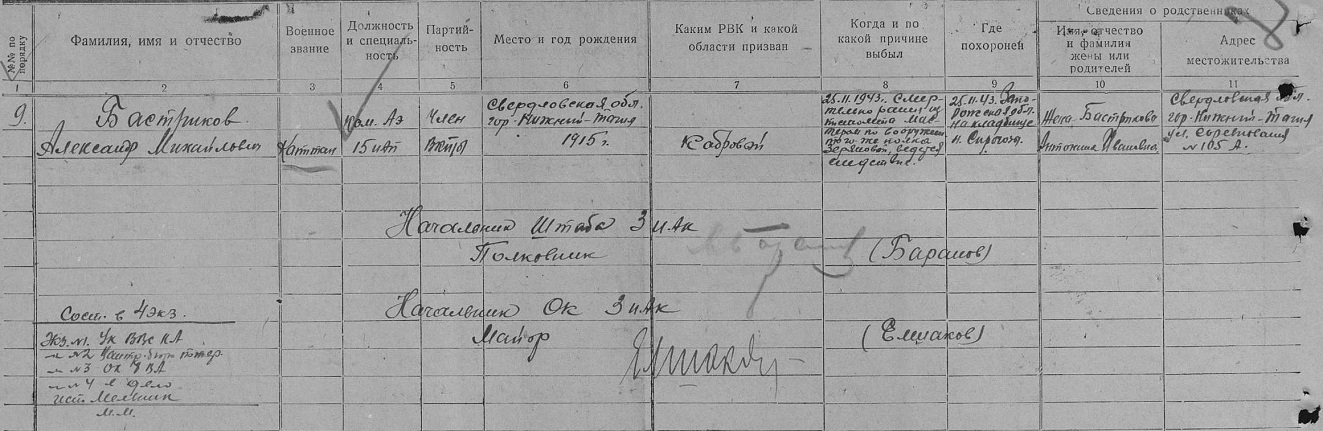 Сведения о родственниках
№№ по порядку
Фамилия, имя и отчество
Военное звание
Должность и специальность
Партийность
Место и год рождения
Каким РВК и какой области призван
Когда и по какой причине выбыл
Где похоронен
Имя, отчество и фамилия жены или родителей
Адрес местожительства
1 2 3 4 5 6 7 8 9 10 11
9.
Бастриков
Александр Михайлович
Капитан
Ком. АЭ
15 иАП
Член
ВКП(б)
Свердловская обл.
гор. Нижний-Тагил
1915 г.
Кадровой
25.11.1943 г. Смер-
тельно ранен из
пистолета мас-
тером по вооружен.
того же полка
ведется
следствие.
25.11.43. Запо-
рожская обл.
на кладбище
н. Сирогоз.
Жена-Бастрикова
Антонина Ивановна
Свердловская обл.
гор. Нижний-Тагил
ул. Соревнования
№ 105 А.
Начальник Штаба 3 иАк
Полковник (Баранов)
Начальник Ок 3 иАк
Майор (Ермаков)
Сост. в 4 экз.
Экз. №1 Ук ВВС КА
№2
№3 ОК 8 ВА
№4 в дело
исп. Мельник
м.м.